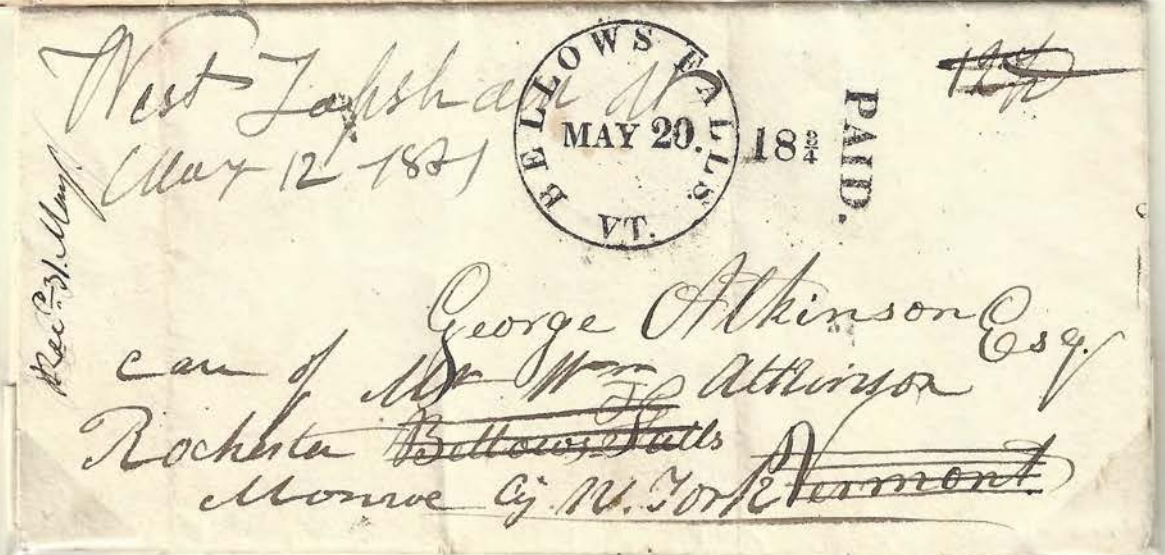 West Topsham Vt
May 12 1831
BELLOWS FALLS.
MAY 20.
VT.
18 3/4
PAID.
Rec'd 31. May.
George Atkinson Esq.
care of Mr Wm Atkinson
Rochester Bellows Falls
Monroe Cy N. York Vermont.